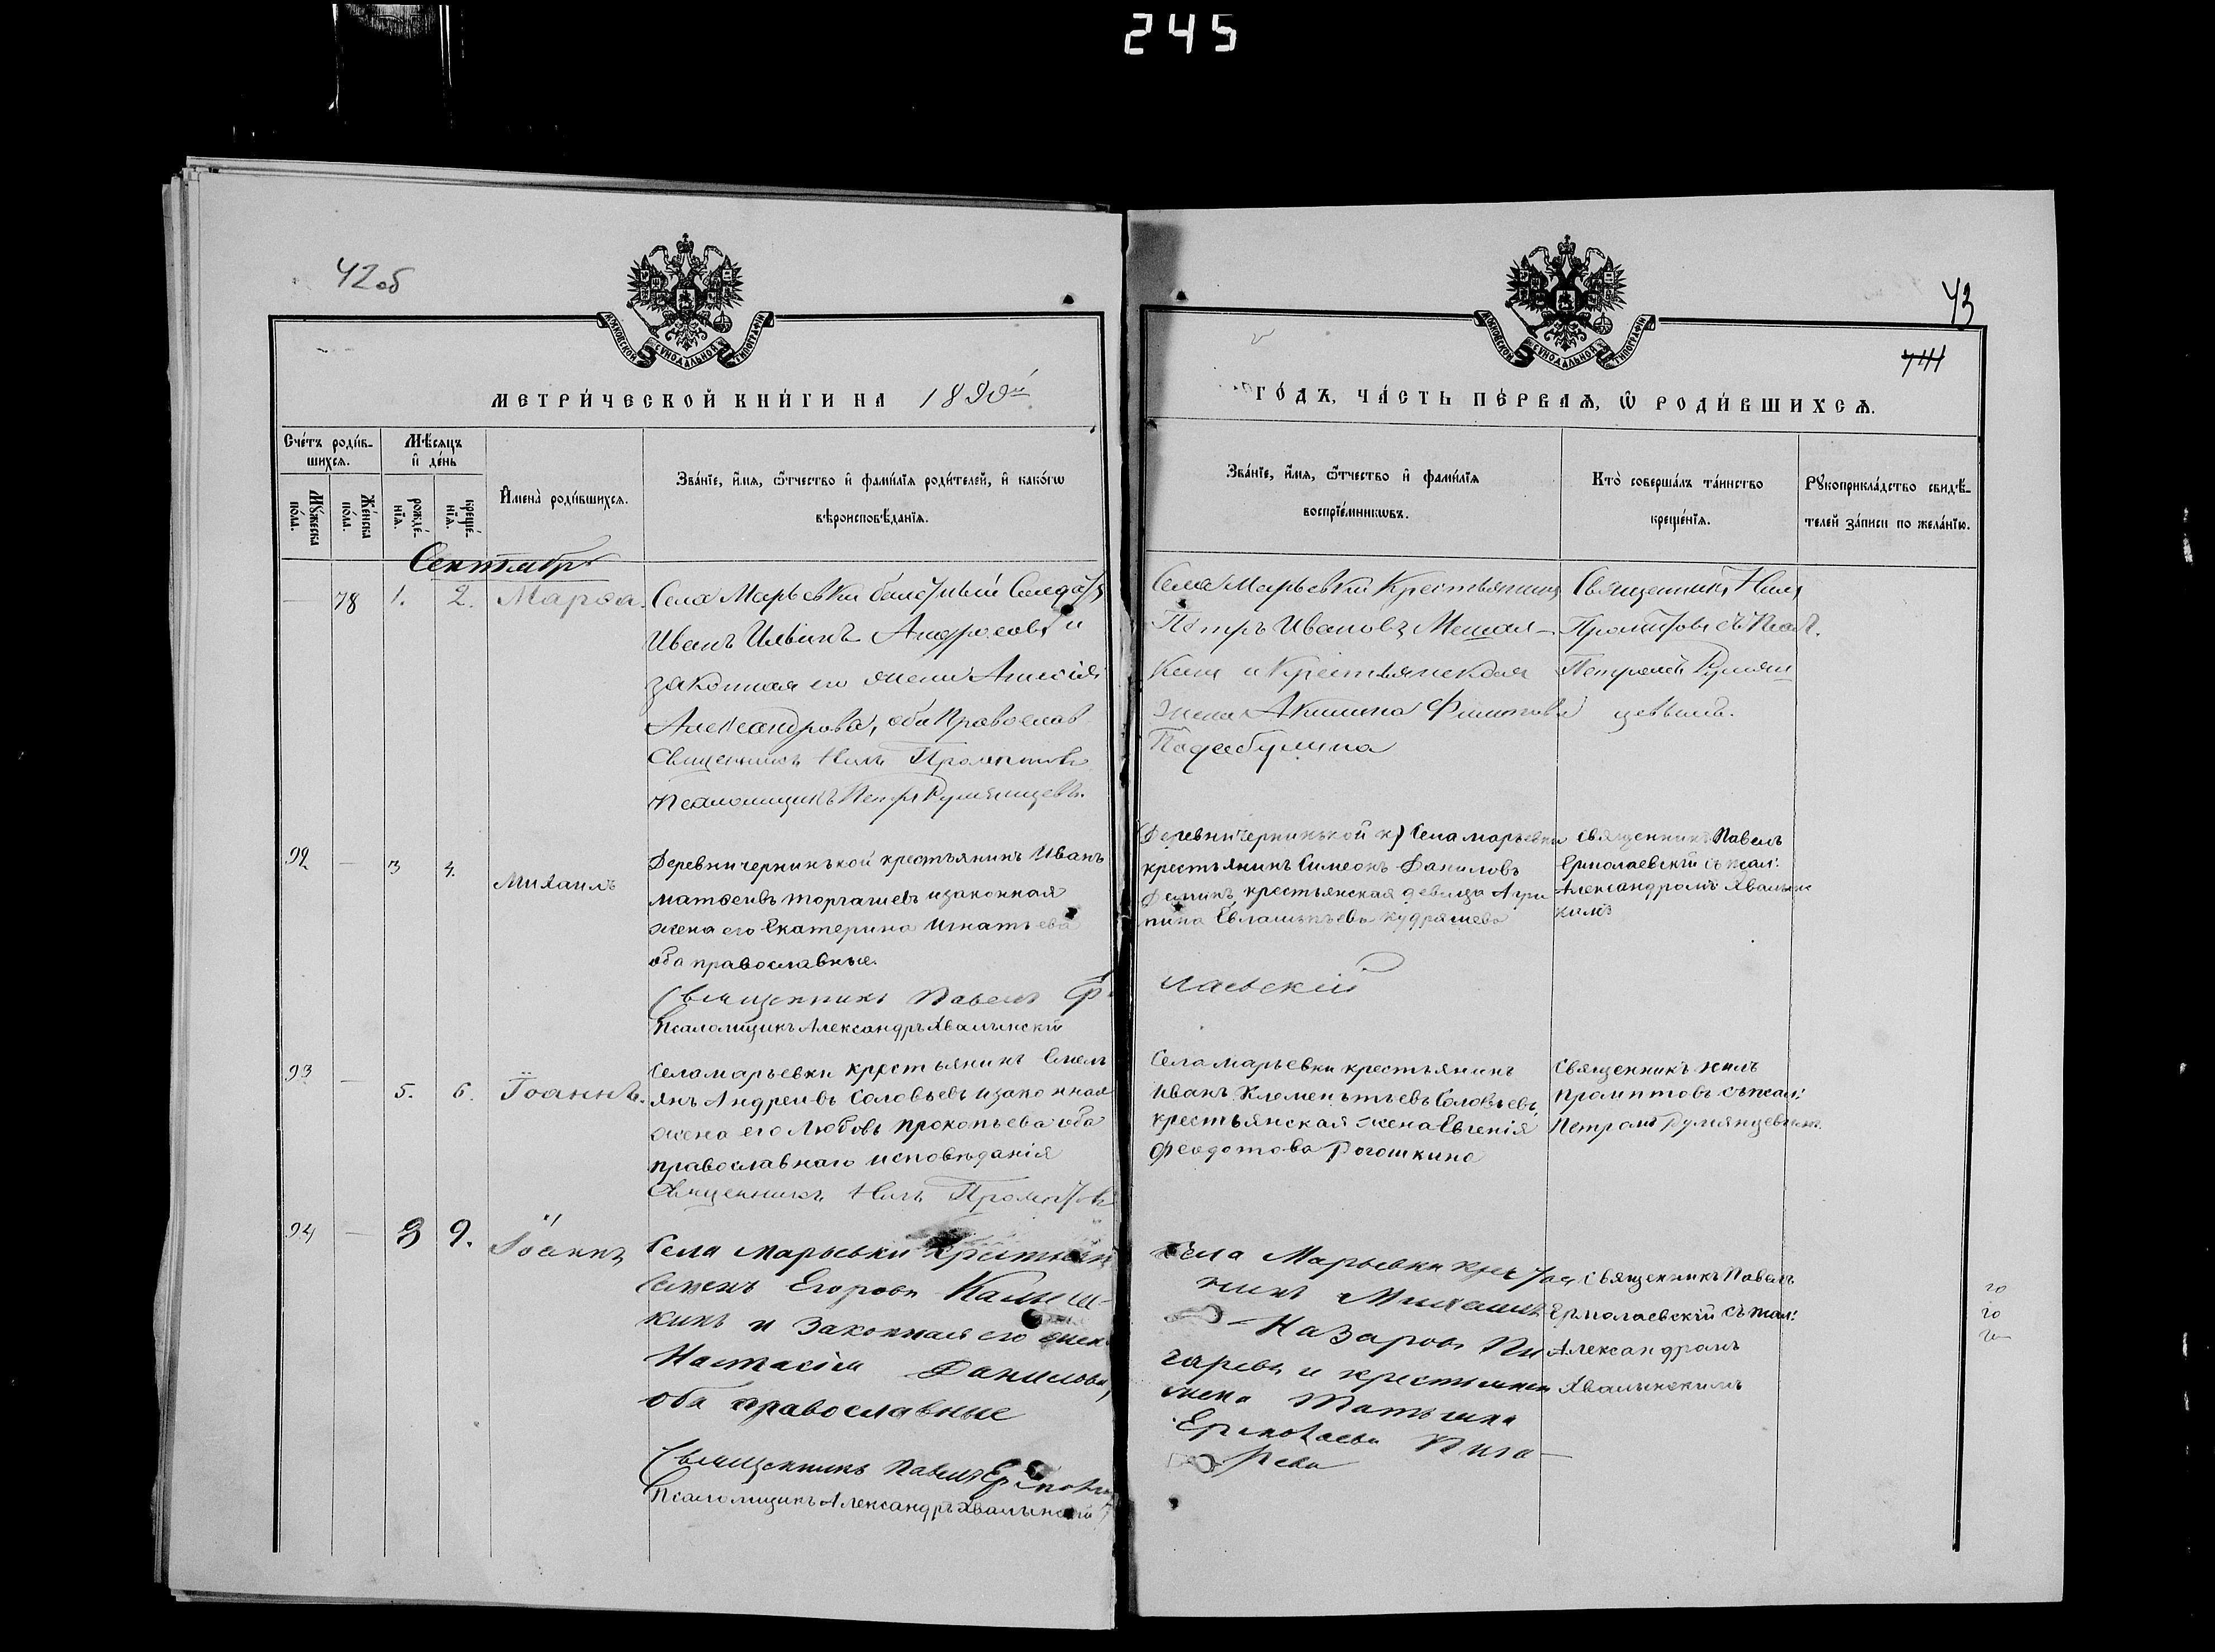 245
42об
43
МОСКОВСКОЙ СѴНОДАЛЬНОЙ ТИПОГРАФІИ
МОСКОВСКОЙ СѴНОДАЛЬНОЙ ТИПОГРАФІИ
МЕТРИ́ЧЕСКОЙ КНИ́ГИ НА 1890й
ГО́ДЪ, ЧА́СТЬ ПЕ́РВАЯ, Ѡ҆ РОДИ́ВШИХСЯ.
Сче́тъ роди́в-
шихся.
Мѣ́сяцъ
и҆ де́нь
Мꙋ́жеска по́ла.
Же́нска по́ла.
рожде́-
нїя.
креще́-
нїя.
И҆мена̀ роди́вшихся.
Зва́нїе, и҆́мя, ѻ҆́тчество и҆ фами́лїя роди́телей, и҆ како́гѡ
вѣроисповѣ́данїя.
Зва́нїе, и҆́мя, ѻ҆́тчество и҆ фами́лїя
воспрїе́мникѡвъ.
Кто̀ соверша́лъ та́инство
креще́нїя.
Рꙋкоприкла́дство свидѣ́-
телей за́писи по жела́нїю.
Сентябрь
— 78 1. 2. Марѳа.
Села Марьевки билетный Солдатъ
Иванъ Ильинъ и
законная его жена
Александрова, оба Православ
Священникъ Нилъ Промптовъ
Псаломщикъ Петръ Румянцевъ.
Села Марьевки Крестьянинъ
Петръ Ивановъ
и Крестьянская
жена Акилина
Священникъ Нилъ
Промптовъ съ Псал.
Петромъ Румян
цевымъ.
92 — 3 4. Михаилъ
Деревни чернинькой крестьянинъ Иванъ
матѳеивъ торгашевъ и законная
жена его Екатерина Игнатьева
оба православные.
Священникъ Павелъ Ер
Псаломщикъ Александръ Хвалынскій
Деревни чернинькой к) Села марьевки
крестьянинъ Симеонъ Даниловъ
Деминъ, крестьянская девица Агри
пина Евлампьева кудряшева
лаевскій
священникъ Павелъ
Ермолаевскій съ псал:
Александромъ Хвалынс
кимъ
93 — 5. 6. Іоаннъ.
Села марьевки крестьянинъ Емель
янъ Андреивъ Соловьевъ и законная
жена его Любовь прокопьева оба
православнаго исповѣданія
Священникъ Нилъ Промптовъ
Села марьевки крестьянинъ
Иванъ Клементьевъ Соловьевъ,
крестьянская жена Евгенія
Феодотова Рогошкина
Священникъ нилъ
промптовъ съ псал:
Петромъ Румянцевымъ.
94 — 8 9. Іоаннъ
Села Марьевки крестьян
Семенъ Егоровъ Камыш-
кинъ и законная его жена
Настасія Данилова,
оба православные
Священникъ Павелъ Ермола
Псаломщикъ Александръ Хвалынскій
Села Марьевки крестья
нинъ Михаилъ
Назаровъ Пи
гаревъ и крестьянск
жена Татьяна
Ермолаева Пига-
рева
священникъ Павелъ
Ермолаевскій съ псал:
Александромъ
Хвалынскимъ